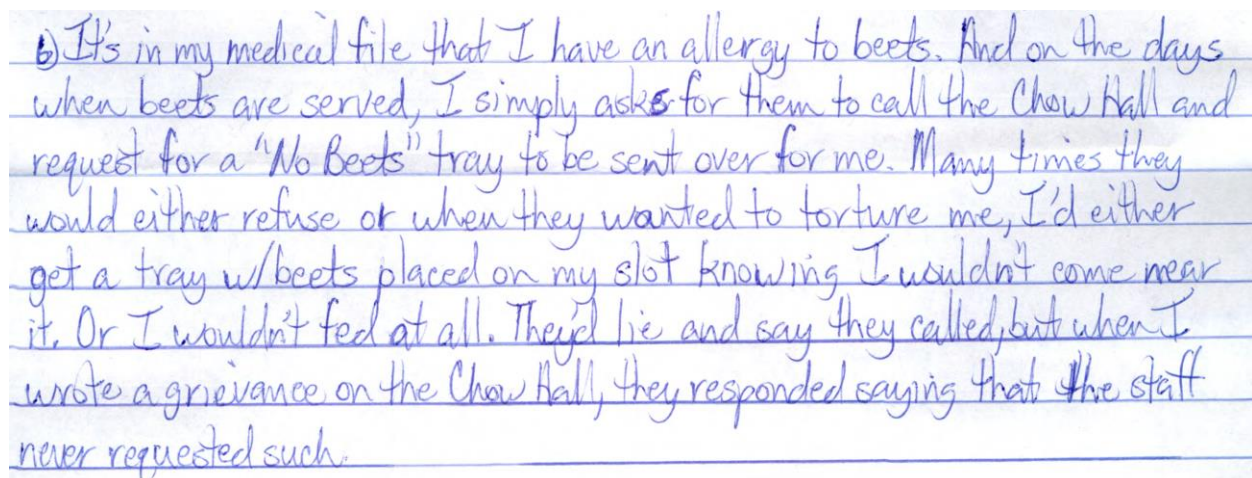 b) It's in my medical file that I have an allergy to beets. And on the days
when beets are served, I simply asks for them to call the Chow Hall and
request for a "No Beets" tray to be sent over for me. Many times they
would either refuse or when they wanted to torture me, I'd either
get a tray w/beets placed on my slot knowing I wouldn't come near
it. Or I wouldn't fed at all. They'd lie and say they called, but when I
wrote a grievance on the Chow Hall, they responded saying that the staff
never requested such.